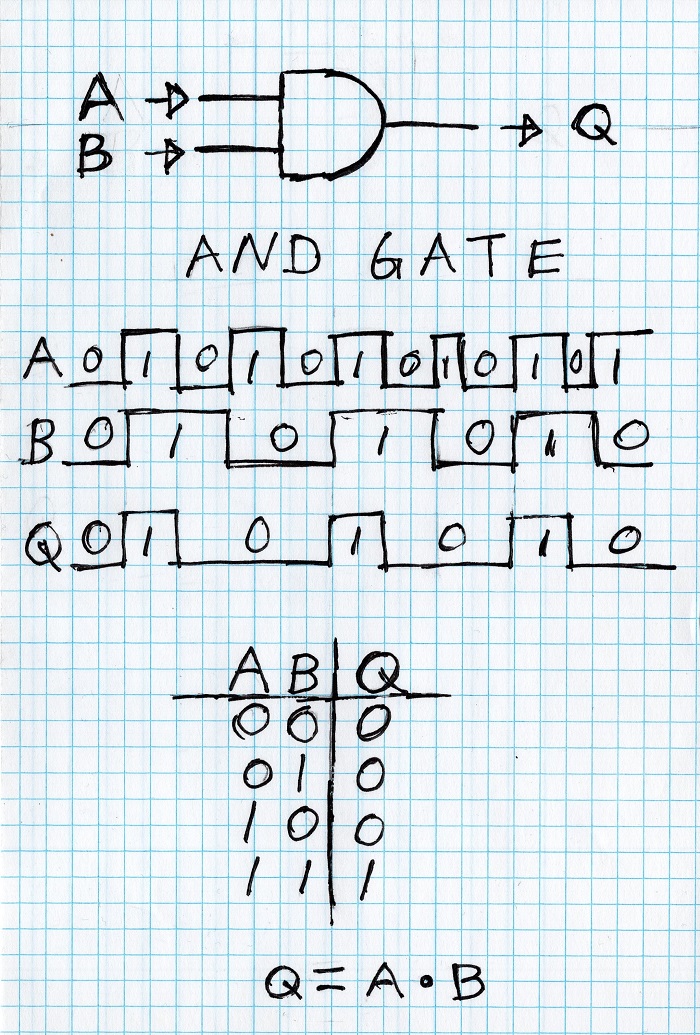 A
B
Q
AND GATE
A 0 1 0 1 0 1 0 1 0 1 0 1
B 0 1 0 1 0 1 0
Q 0 1 0 1 0 1 0
A B Q
0 0 0
0 1 0
1 0 0
1 1 1
Q = A • B